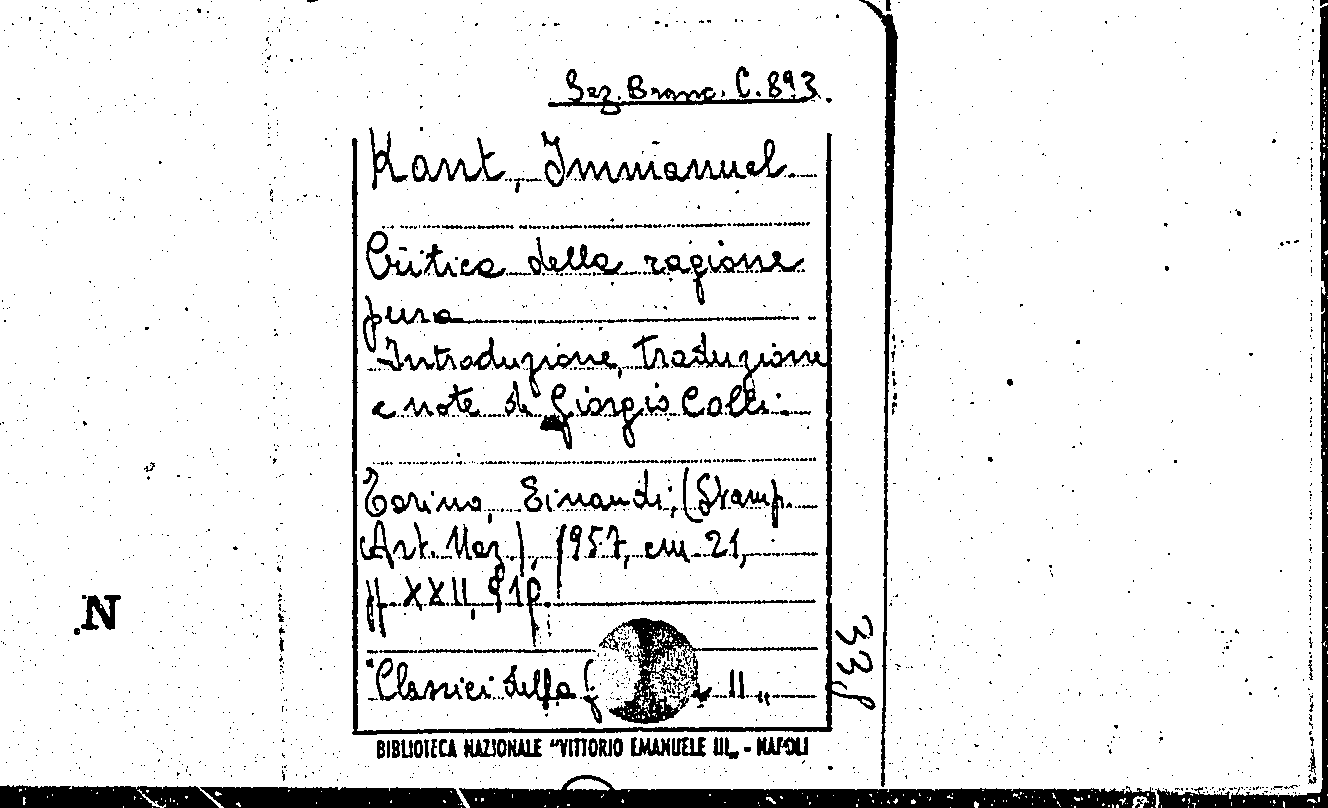 Sez. Branc. C. 893
Kant, Immanuel
Critica della ragione
pura
Introduzione, traduzione
e note di Giorgio Colli.
Torino, Einaudi, (Stamp.
Art. Naz.), 1957, cm 21,
pp. XXII,
"Classici della 11"
BIBLIOTECA NAZIONALE "VITTORIO EMANUELE III" - NAPOLI
N